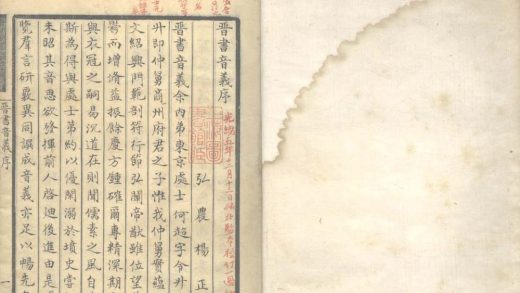 晉書音義序
弘農楊正
晉書音義余内弟東京處士何超字令升
升即仲舅商州府君之子惟我仲舅實蘊
文紹興門範剖符行節弘闡帝猷雖位望
而增脩益振餘慶方鍾確爾專精深期
與衣冠之嗣易沉道在則聞儒素之風自
斯為得與處士弟約以優閑溺於墳史嘗
未昭其音悉欲發揮前人啓迪後進由是
覽羣言研覈異同撰成音義亦足以暢先
晉書音義序
一
光緒五年十二月十二日以北監本校